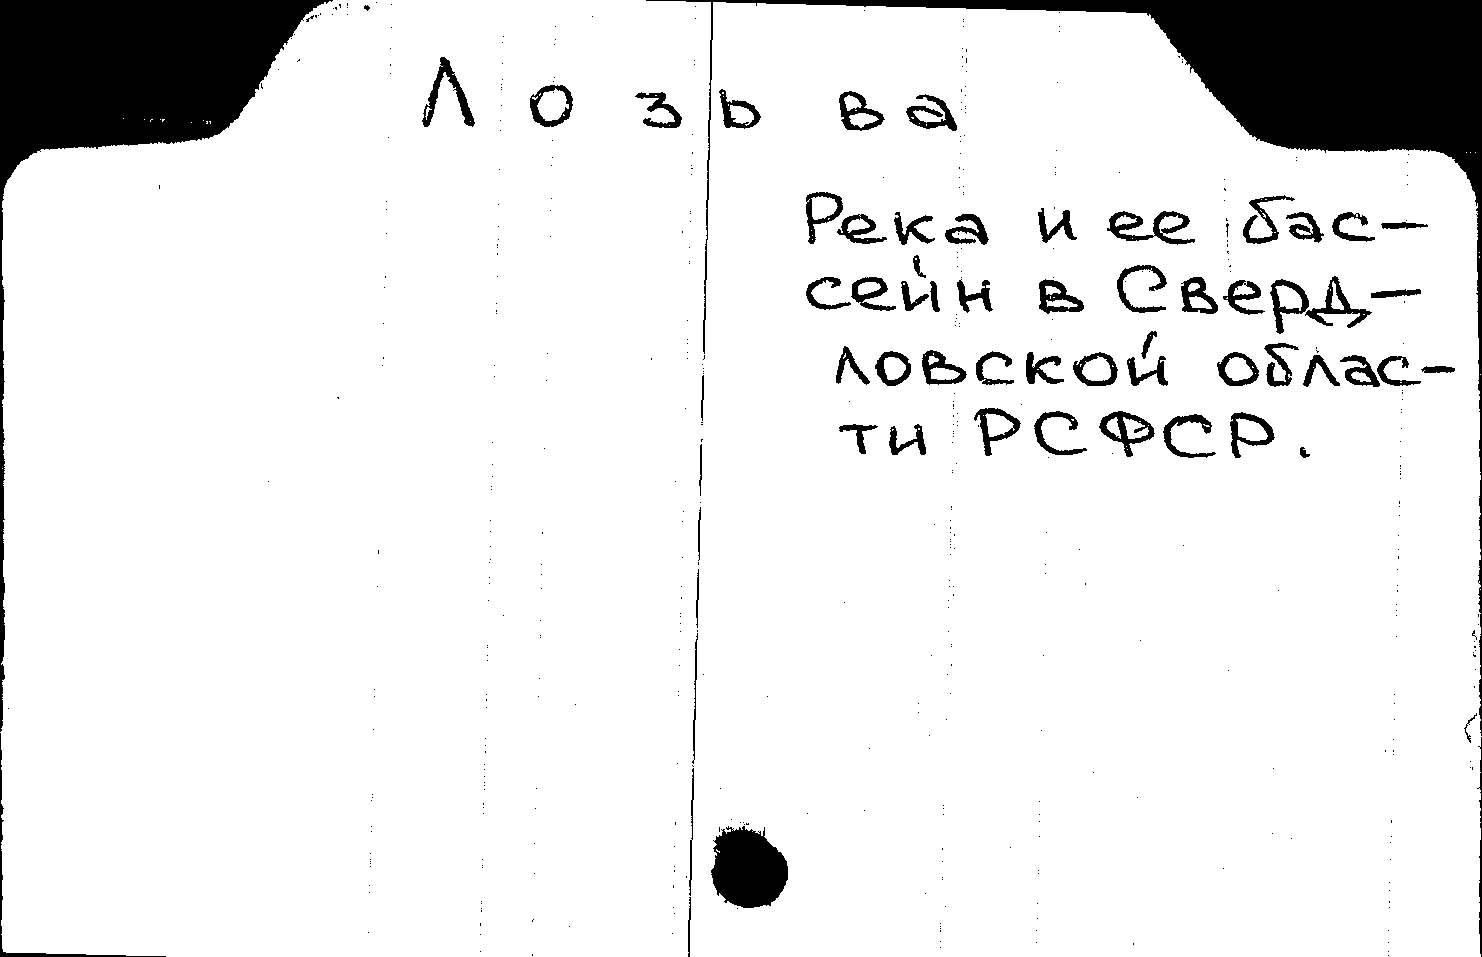 Лозьва
Река и ее бас-
сейн в Сверд-
ловской облас-
ти РСФСР.